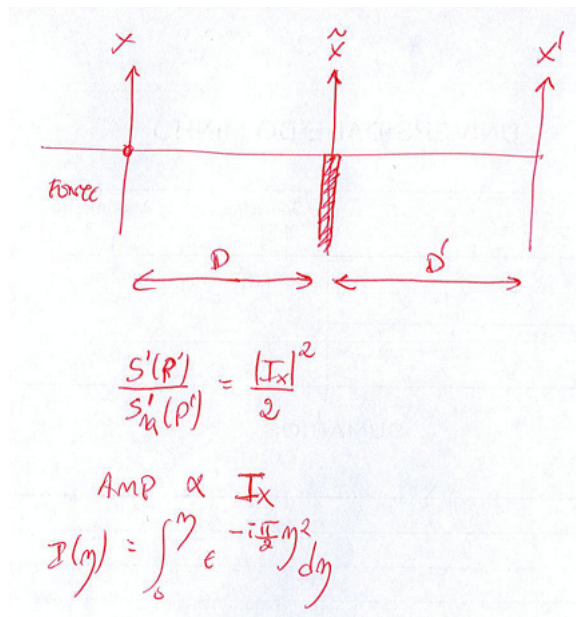 x x̃ x'
FONTE
D D'
S'(P') / S'ₙₐ(P') = |Iₓ|² / 2
AMP ∝ Iₓ
I(η) = ∫₀^η e^(-i π/2 η²) dη